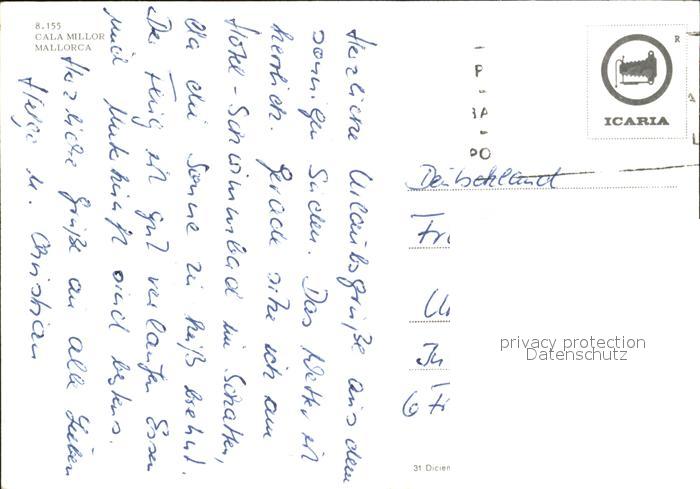 8.155
CALA MILLOR
MALLORCA
Herzliche Urlaubsgrüße aus dem
sonnigen Süden. Das Wetter ist
herrlich. Gerade sitze ich am
Hotel-Schwimmbad im Schatten,
da die Sonne zu heiß brennt.
Der Flug ist gut verlaufen Essen
und Unterkunft sind bestens.
Herzliche Grüße an alle Lieben
Helga u. Christian
R
ICARIA
Deutschland
Fr
Ur
In
6 Fr
privacy protection
Datenschutz
31 Dicien